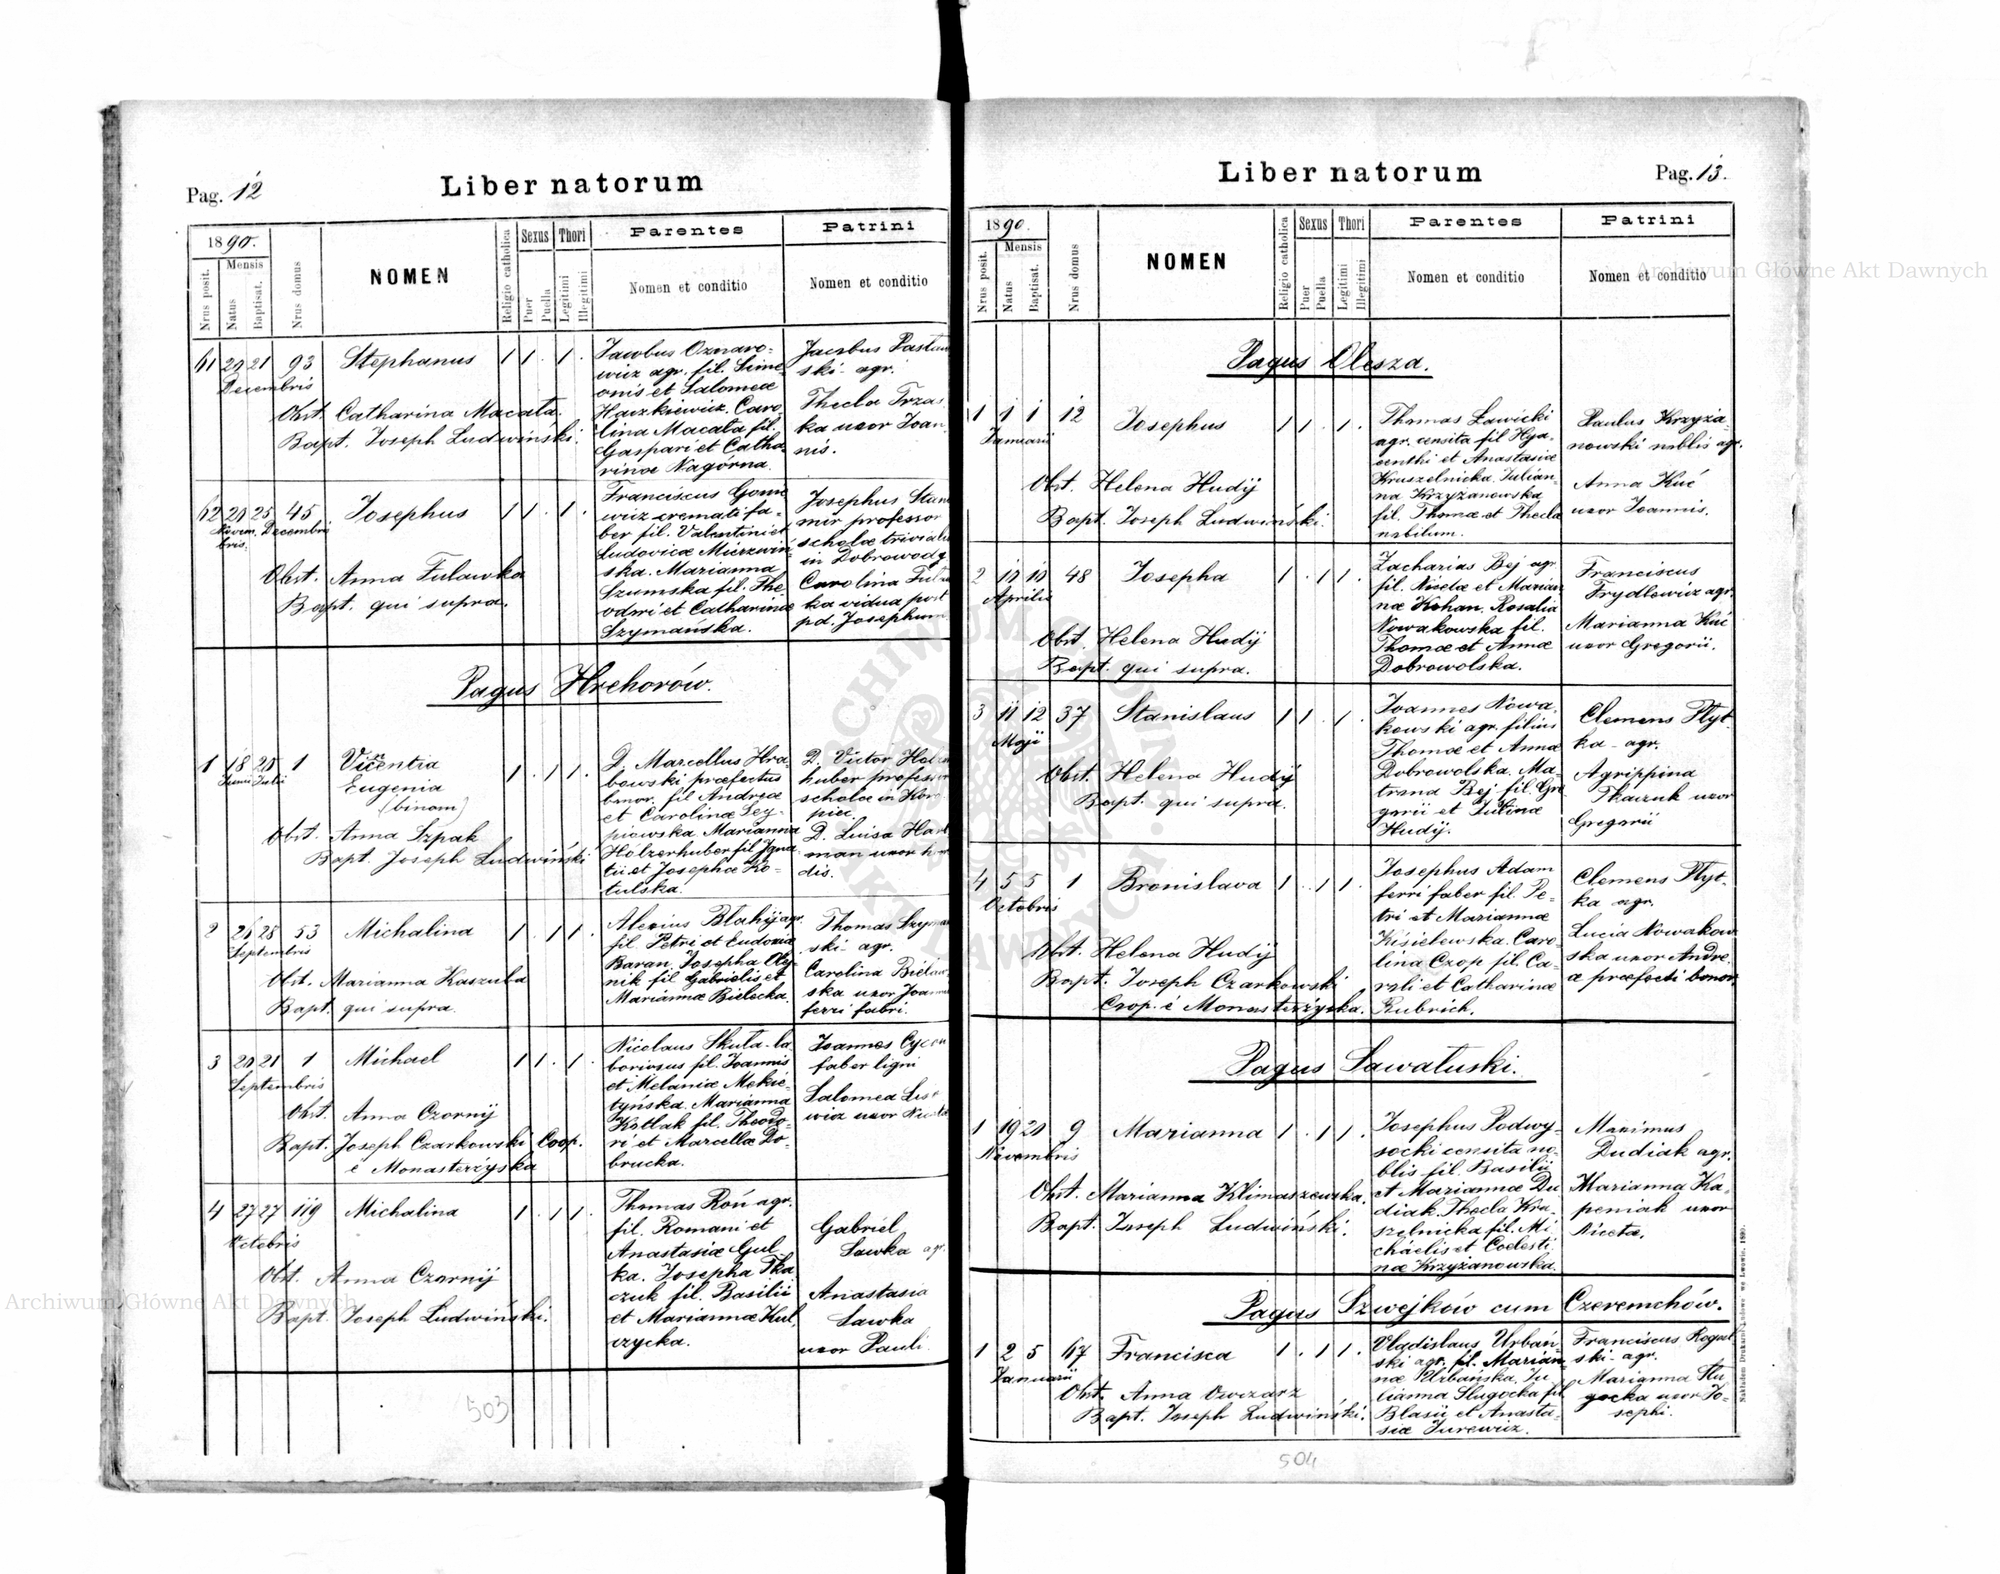 Pag. 12
Liber natorum
1890.
Mensis
Nrus posit.
Natus
Baptisat.
Nrus domus
NOMEN
Religio catholica
Sexus
Puer
Puella
Thori
Legitimi
Illegitimi
Parentes
Nomen et conditio
Patrini
Nomen et conditio
61 20 21 93 Stephanus 1 1 . 1 .
Decembris
Obst. Catharina Macała.
Bapt. Joseph Ludwiński.
Jacobus Oznaro-
wicz agr. fil. Sime-
onis et Salomeæ
Haczkiewicz. Caro-
lina Macała fil.
Gaspari et Catha-
rinæ Nagórna.
Jacobus
ski agr.
Thecla Trzas
ka uxor Joan-
nis.
62 20 25 45 Josephus 1 1 . 1 .
Novem- Decembris
bris.
Obst. Anna Fuławka
Bapt. qui supra.
Franciscus
wicz cremati fa-
ber fil. Valentini et
Ludovicæ Mierzwiń-
ska. Marianna
Szumska fil. The-
odori et Catharinæ
Szymańska.
Josephus
mir professor
scholæ trivialis
in Dobrowody
Carolina
ka vidua post
pd. Josephum
Pagus Hrehorów.
1 18 20 1 Vicentia
Junii Julii
Eugenia
(binom)
1 . 1 1 .
Obst. Anna Szpak
Bapt. Joseph Ludwiński
D. Marcellus Hra-
bowski præfectus
bonor. fil Andreæ
et Carolinæ Ley-
piowska Marianna
Holzerhuber fil Igna-
tii et Josephæ Ko-
tulska.
D. Victor
huber professor
scholæ in Koro
piec
D. Luisa Hart
man uxor
dis.
2 26 28 53 Michalina 1 . 1 1 .
Septembris
Obst. Marianna Kaszuba
Bapt. qui supra.
Alexius Błahij agr.
fil. Petri et Eudoxiæ
Baran. Josepha Oly-
nik fil. Gabrielis et
Mariannæ Bielecka.
Thomas Szyman
ski agr.
Carolina Bielaw
ska uxor Joannis
ferri fabri.
3 20 21 1 Michael 1 1 . 1 .
Septembris
Obst. Anna Czornij
Bapt. Joseph Czarkowski Coop.
é Monasterżyska
Nicolaus Skuła la-
boriosus fil. Joannis
et Melaniæ Mekie-
tyńska. Marianna
Kotlak fil. Theodo-
ri et Marcellæ Do-
brucka.
Joannes
faber ligni
Salomea
wicz uxor
4 27 27 119 Michalina 1 . 1 1 .
Octobris
Obst. Anna Czornij
Bapt. Joseph Ludwiński.
Thomas Roń agr.
fil. Romani et
Anastasiæ Gul-
ka. Josepha Tka
czuk fil. Basilii
et Mariannæ Kul
czycka.
Gabriel
Sawka agr.
Anastasia
Sawka
uxor Pauli
503
Liber natorum
Pag. 13.
1890.
Mensis
Nrus posit.
Natus
Baptisat.
Nrus domus
NOMEN
Religio catholica
Sexus
Puer
Puella
Thori
Legitimi
Illegitimi
Parentes
Nomen et conditio
Patrini
Nomen et conditio
Pagus Olesza.
1 1 1 12 Josephus 1 1 . 1 .
Januarii
Obst. Helena Hudij
Bapt. Joseph Ludwiński.
Thomas Ławicki
agr. censita fil Hya-
centhi et Anastasiæ
Kruszelnicka. Julian-
na Krzyżanowska
fil. Thomæ et Theclæ
nobilium.
Paulus Krzyża-
nowski noblis agr.
Anna Kuć
uxor Joannis.
2 10 10 48 Josepha 1 . 1 1 .
Aprilis
Obst. Helena Hudij
Bapt. qui supra.
Zacharias Bej agr.
fil. Nicetæ et Marian
næ Kohan. Rosalia
Nowakowska fil.
Thomæ et Annæ
Dobrowolska.
Franciscus
Frydlewicz agr.
Marianna Kuć
uxor Gregorii.
3 11 12 37 Stanislaus 1 1 . 1 .
Maji
Obst. Helena Hudij
Bapt. qui supra.
Joannes Nowa-
kowski agr. filius
Thomæ et Annæ
Dobrowolska. Ma-
trona Bej fil. Gre-
gorii et Julinæ
Hudij.
Clemens Płyt-
ka agr.
Agrippina
Tkaczuk uxor
Gregorii
4 5 5 1 Bronislava 1 . 1 1 .
Octobris
Obst. Helena Hudij
Bapt. Joseph Czarkowski
Coop. é Monasterżyska.
Josephus Adam
ferri faber fil. Pe-
tri et Mariannæ
Kisielewska. Caro-
lina Czop fil. Ca-
roli et Catharinæ
Rubrich.
Clemens Płyt-
ka agr.
Lucia Nowakow
ska uxor Andre-
æ præfecti bonor
Pagus Sawałuski.
1 19 20 9 Marianna 1 . 1 1 .
Novembris
Obst. Marianna Klimaszewska.
Bapt. Joseph Ludwiński.
Josephus Podwy-
socki censita no-
blis fil. Basilii
et Mariannæ Du
diak. Thecla Kru-
szelnicka fil. Mi-
chaelis et Coelesti-
næ Krzyżanowska.
Maximus
Dudiak agr.
Marianna Ka-
peniak uxor
Nicetæ.
Pagus Szwejków cum Czeremchów.
1 2 5 67 Francisca 1 . 1 1 .
Januarii
Obst. Anna Owczarz
Bapt. Joseph Ludwiński.
Vladislaus Urbań-
ski agr. fil. Marian-
næ Urbańska. Ju-
lianna Sługocka fil
Blasii et Anasta-
siæ Jurewicz.
Franciscus Rogal
ski agr.
Marianna Słu
gocka uxor Jo-
sephi.
504
Archiwum Główne Akt Dawnych
Archiwum Główne Akt Dawnych
ARCHIWUM GŁÓWNE AKT DAWNYCH